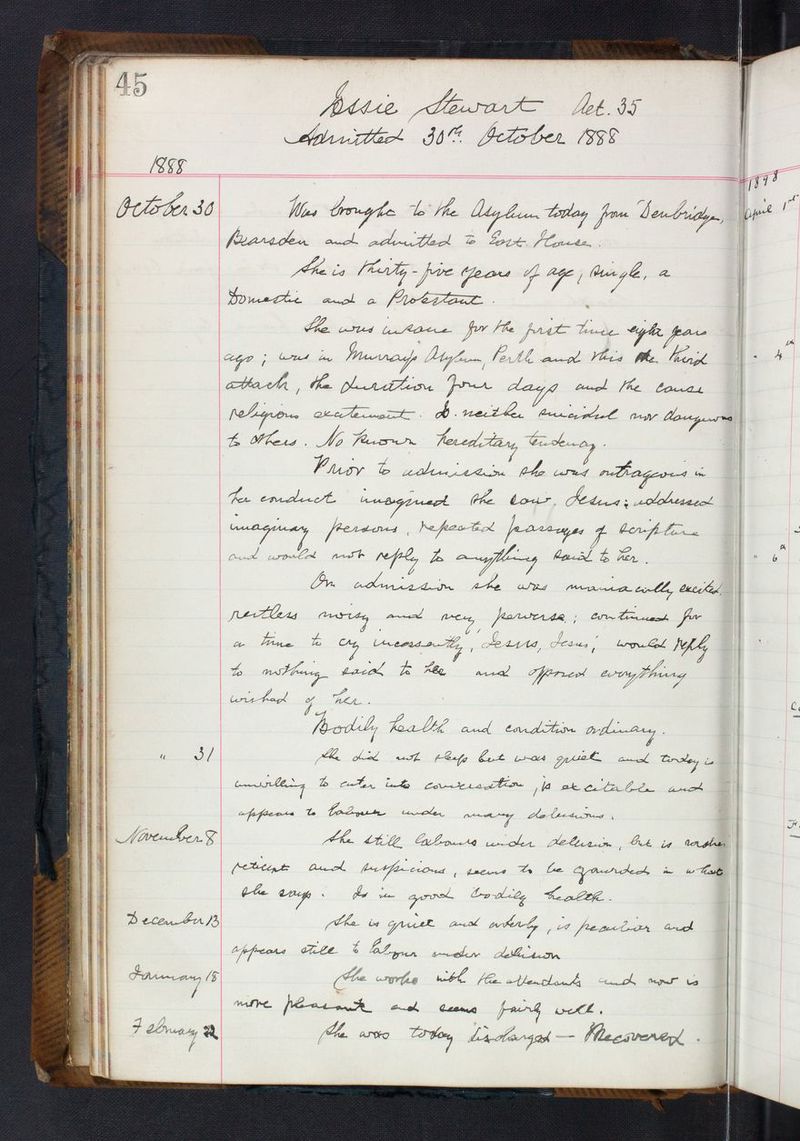 45
Essie Stewart Aet. 35
Admitted 30th October 1888
1888
October 30 Was brought to the Asylum today from Denbridge,
Bearsden and admitted to East House.
She is thirty-five years of age, single, a
Domestic and a Protestant.
She was insane for the first time eight years
ago; was in Murray's Asylum, Perth and this the third
attack, the duration four days and the cause
religious excitement. Is neither suicidal nor dangerous
to others. No known hereditary tendency.
Prior to admission she was outrageous in
her conduct imagined she saw Jesus; addressed
imaginary persons, repeated passages of scripture
and would not reply to anything said to her.
On admission she was maniacally excited,
restless noisy and very perverse; continued for
a time to cry incessantly, 'Jesus, Jesus', would reply
to nothing said to her and opposed everything
wished of her.
Bodily health and condition ordinary.
" 31 She did not sleep but was quiet and today is
unwilling to enter into conversation, is excitable and
appears to labour under many delusions.
November 8 She still labours under delusion, but is rather
reticent and suspicious, seems to be guarded in what
she says. Is in good bodily health.
December 13 She is quiet and orderly, is peculiar and
appears still to labour under delusion
January 18 She works with the attendants and now is
more pleasant and seems fairly well.
February 22 She was today discharged — Recovered.
1898
April 1st
" 4th
" 6th